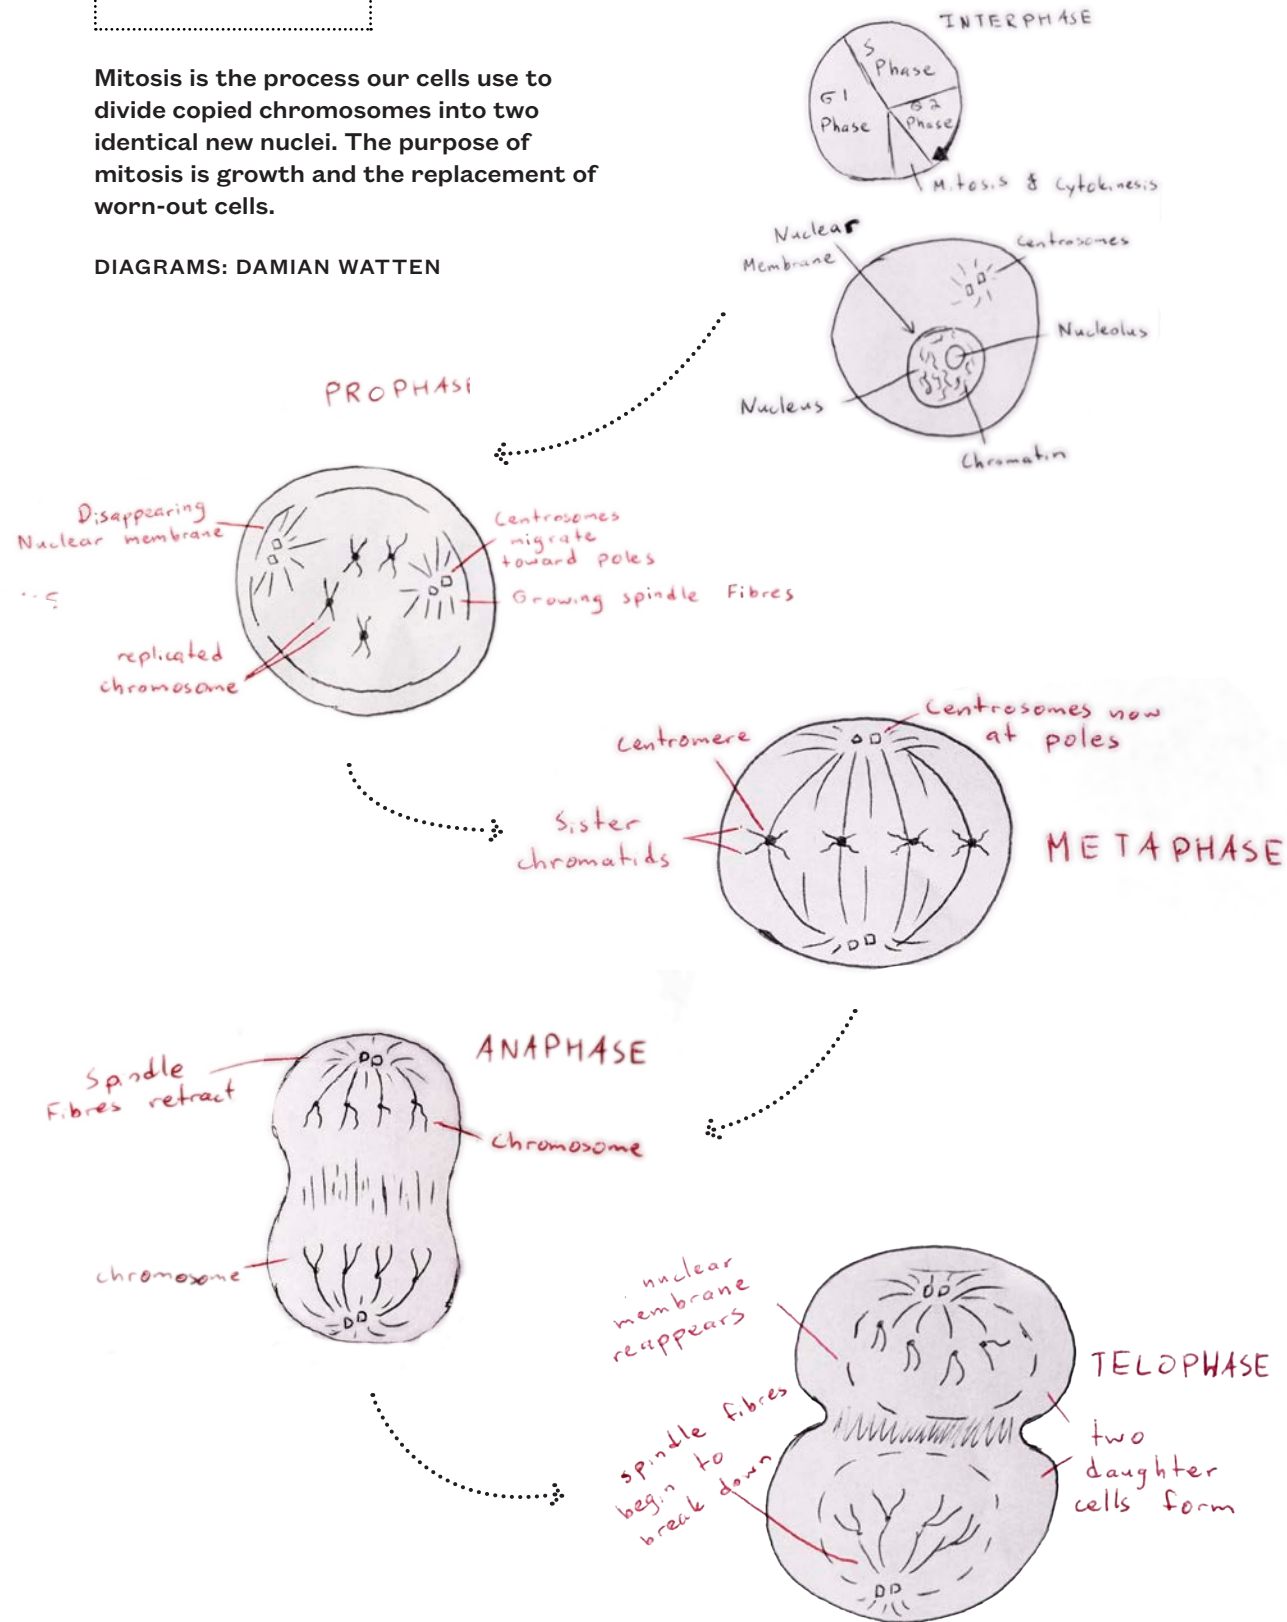 Mitosis is the process our cells use to
divide copied chromosomes into two
identical new nuclei. The purpose of
mitosis is growth and the replacement of
worn-out cells.
DIAGRAMS: DAMIAN WATTEN
INTERPHASE
S
Phase
G1
Phase
G2
Phase
Mitosis & Cytokinesis
Nuclear
Membrane
Centrosomes
Nucleolus
Nucleus
Chromatin
PROPHASE
Disappearing
Nuclear membrane
Centrosomes
migrate
toward poles
Growing spindle Fibres
replicated
chromosome
Centromere
Centrosomes now
at poles
Sister
chromatids
METAPHASE
ANAPHASE
Spindle
Fibres retract
chromosome
chromosome
nuclear
membrane
reappears
TELOPHASE
spindle fibres
begin to
break down
two
daughter
cells form